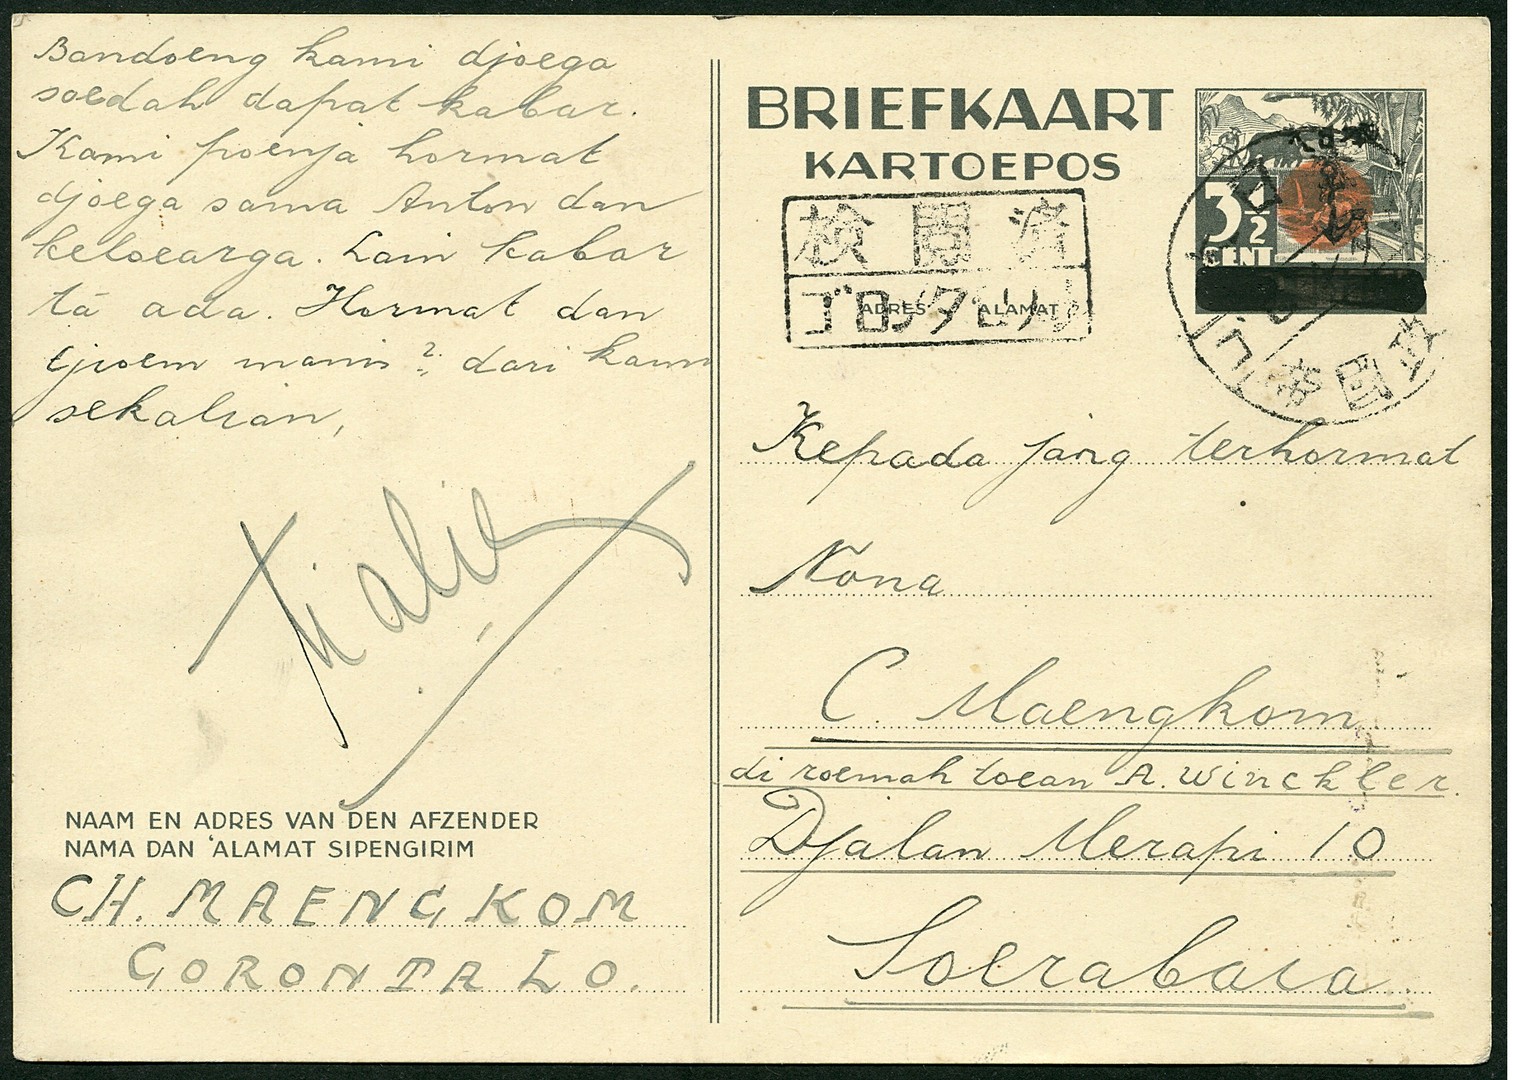 Bandoeng kami djoega
soedah dapat kabar.
Kami poenja hormat
djoega sama Anton dan
keloearga. Lain kabar
tà ada. Hormat dan
tjioem manis ² dari kami
sekalian,
NAAM EN ADRES VAN DEN AFZENDER
NAMA DAN 'ALAMAT SIPENGIRIM
CH. MAENGKOM
GORONTALO.
BRIEFKAART
KARTOEPOS
3½
CENT
検閲済
ゴロンタロ
ADRES ALAMAT
Kepada jang terhormat
Nona
C. Maengkom
di roemah toean A. Winckler.
Djalan Merapi 10
Soerabaia